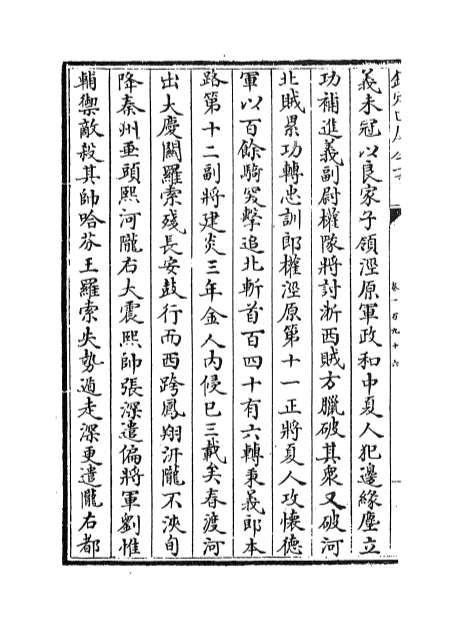 義未冠以良家子領涇原軍政和中夏人犯邊緣塵立
功補進義副尉權隊將討浙西賊方臘破其衆又破河
北賊累功轉忠訓郎權涇原第十一正將夏人攻懷德
軍以百餘騎突擊追北斬首百四十有六轉秉義郎本
路第十二副將建炎三年金人内侵已三載矣春渡河
出大慶關羅索殘長安鼓行而西跨鳳翔汧隴不浹旬
降秦州垂頭熙河隴右大震熙帥張深遣偏將軍劉惟
輔禦敵殺其帥哈芬王羅索失勢遁走深更遣隴右都
卷一百九十六